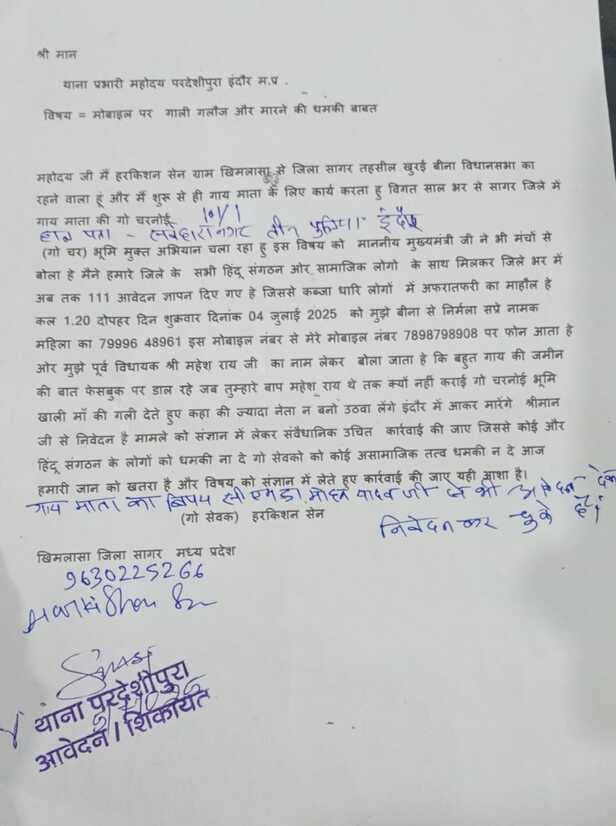 श्री मान
थाना प्रभारी महोदय परदेशीपुरा इंदौर म.प्र .
विषय = मोबाइल पर गाली गलौज और मारने की धमकी बाबत
महोदय जी मैं हरकिशन सेन ग्राम खिमलासा से जिला सागर तहसील खुरई बीना विधानसभा का
रहने वाला हूं और मैं शुरू से ही गाय माता के लिए कार्य करता हु विगत साल भर से सागर जिले में
गाय माता की गो चरनोई 10/1
हाल पता - नगर तीन पुलिया इंदौर
(गो चर) भूमि मुक्त अभियान चला रहा हु इस विषय को माननीय मुख्यमंत्री जी ने भी मंचों से
बोला है मैने हमारे जिले के सभी हिंदू संगठन ओर सामाजिक लोगो के साथ मिलकर जिले भर में
अब तक 111 आवेदन ज्ञापन दिए गए है जिससे कब्जा धारि लोगों में अफरातफरी का माहौल है
कल 1.20 दोपहर दिन शुक्रवार दिनांक 04 जुलाई 2025 को मुझे बीना से निर्मला सप्रे नामक
महिला का 79996 48961 इस मोबाइल नंबर से मेरे मोबाइल नंबर 7898798908 पर फोन आता है
ओर मुझे पूर्व विधायक श्री महेश राय जी का नाम लेकर बोला जाता है कि बहुत गाय की जमीन
की बात फेसबुक पर डाल रहे जब तुम्हारे बाप महेश राय थे तक क्यों नहीं कराई गो चरनोई भूमि
खाली माँ की गली देते हुए कहा की ज्यादा नेता न बनो उठवा लेंगे इंदौर में आकर मारेंगे श्रीमान
जी से निवेदन है मामले को संज्ञान में लेकर संवैधानिक उचित कार्रवाई की जाए जिससे कोई और
हिंदू संगठन के लोगों को धमकी ना दे गो सेवको को कोई असामाजिक तत्व धमकी न दे आज
हमारी जान को खतरा है और विषय को संज्ञान में लेते हुए कार्रवाई की जाए यही आशा है।
गाय माता का विषय सी एम डा. मोहन यादव जी से भी आवेदन देकर
निवेदन कर चुके है।
(गो सेवक) हरकिशन सेन
खिमलासा जिला सागर मध्य प्रदेश
9630225266
थाना परदेशीपुरा
आवेदन / शिकायत